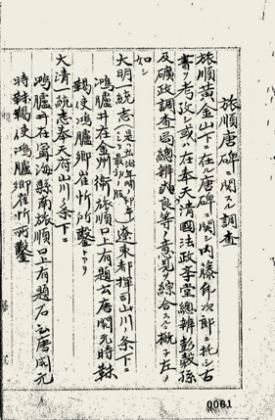 旅順唐碑ニ関スル調査
旅順黄金山下ニ在ル唐碑ニ関シ内藤 次郎ニ托シ古
書ヲ考攷シ或ハ在奉天清国法政学堂総辦彭穀孫
及礦政調査局総辦 良等ノ意見ヲ綜合スルニ概子左ノ
如シ
大明一統志 遼東都指揮司山川ノ条下ニ
鴻臚井在金州衛旅順口上有題石云唐開元時勅
鞨使鴻臚卿崔忻所鑿トアリ
大清一統志奉天府山川ノ条下ニ
鴻臚井在寧海県南旅順口上有題石云唐開元
時 鞨使鴻臚卿崔忻所鑿
0061